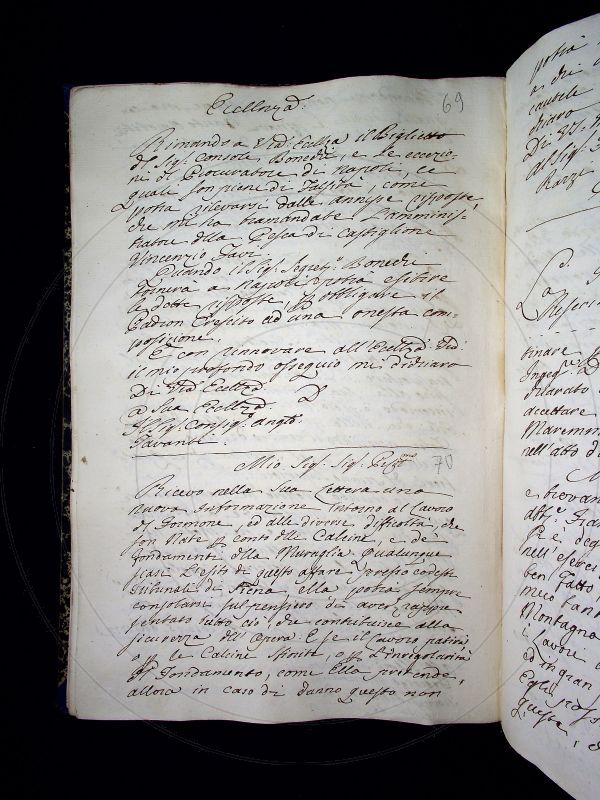 Eccellenza.
69
Rimando a V̄ra Eccllza il Biglietto
del Sig: Console Bonechi, e le eccezio-
ni del Procuratore di Napoli, le
quali son piene di Falsità, come
potrà rilevarsi dalle annesse risposte,
che mi ha tramandate l'amminis-
tratore della Pesca di Castiglione
Vincenzio Favi.
Quando il Sig: Segret.o Bonechi
tornerà a Napoli potrà esibire
le dette risposte, per obbligare il
Padron Crescito ad una onesta com-
posizione.
E con rinnovare all'Eccllza Vra
il mio profondo ossequio mi dichiaro
Di Vra Eccllza
a Sua Eccllza
Il Sig: Consig.e ang.lo
Tavanti.
Mio Sig: Sig:
70
Ricevo nella Sua Lettera una
nuova Informazione intorno al Lavoro
di Tormone, ed alle diverse difficoltà, che
son Nate p conto delle Calcine, e de'
fondamenti della Muraglia. Qualunque
siasi l'esito di questo affare presso codesto
Tribunale di Siena, ella potrà sempre
consolarsi sul pensiero di aver rappre-
sentato tutto ciò, che contribuisce alla
sicurezza dell'Opera: E se il Lavoro patirà
o p le Calcine sfiorite, o p l'irregolarità
del fondamento, come Ella pretende,
allora in caso di danno questo non
potrà
cautele
chiaro
Di V.S.
al Sig:
La
Riserv
tinare
Ingeg.re
dilavato
accettare
Maremm
nell'atto d
e brevan
nell'eserci
ben fatto
meco tant
Montagna
i Lavori
ed in gran
questa, e